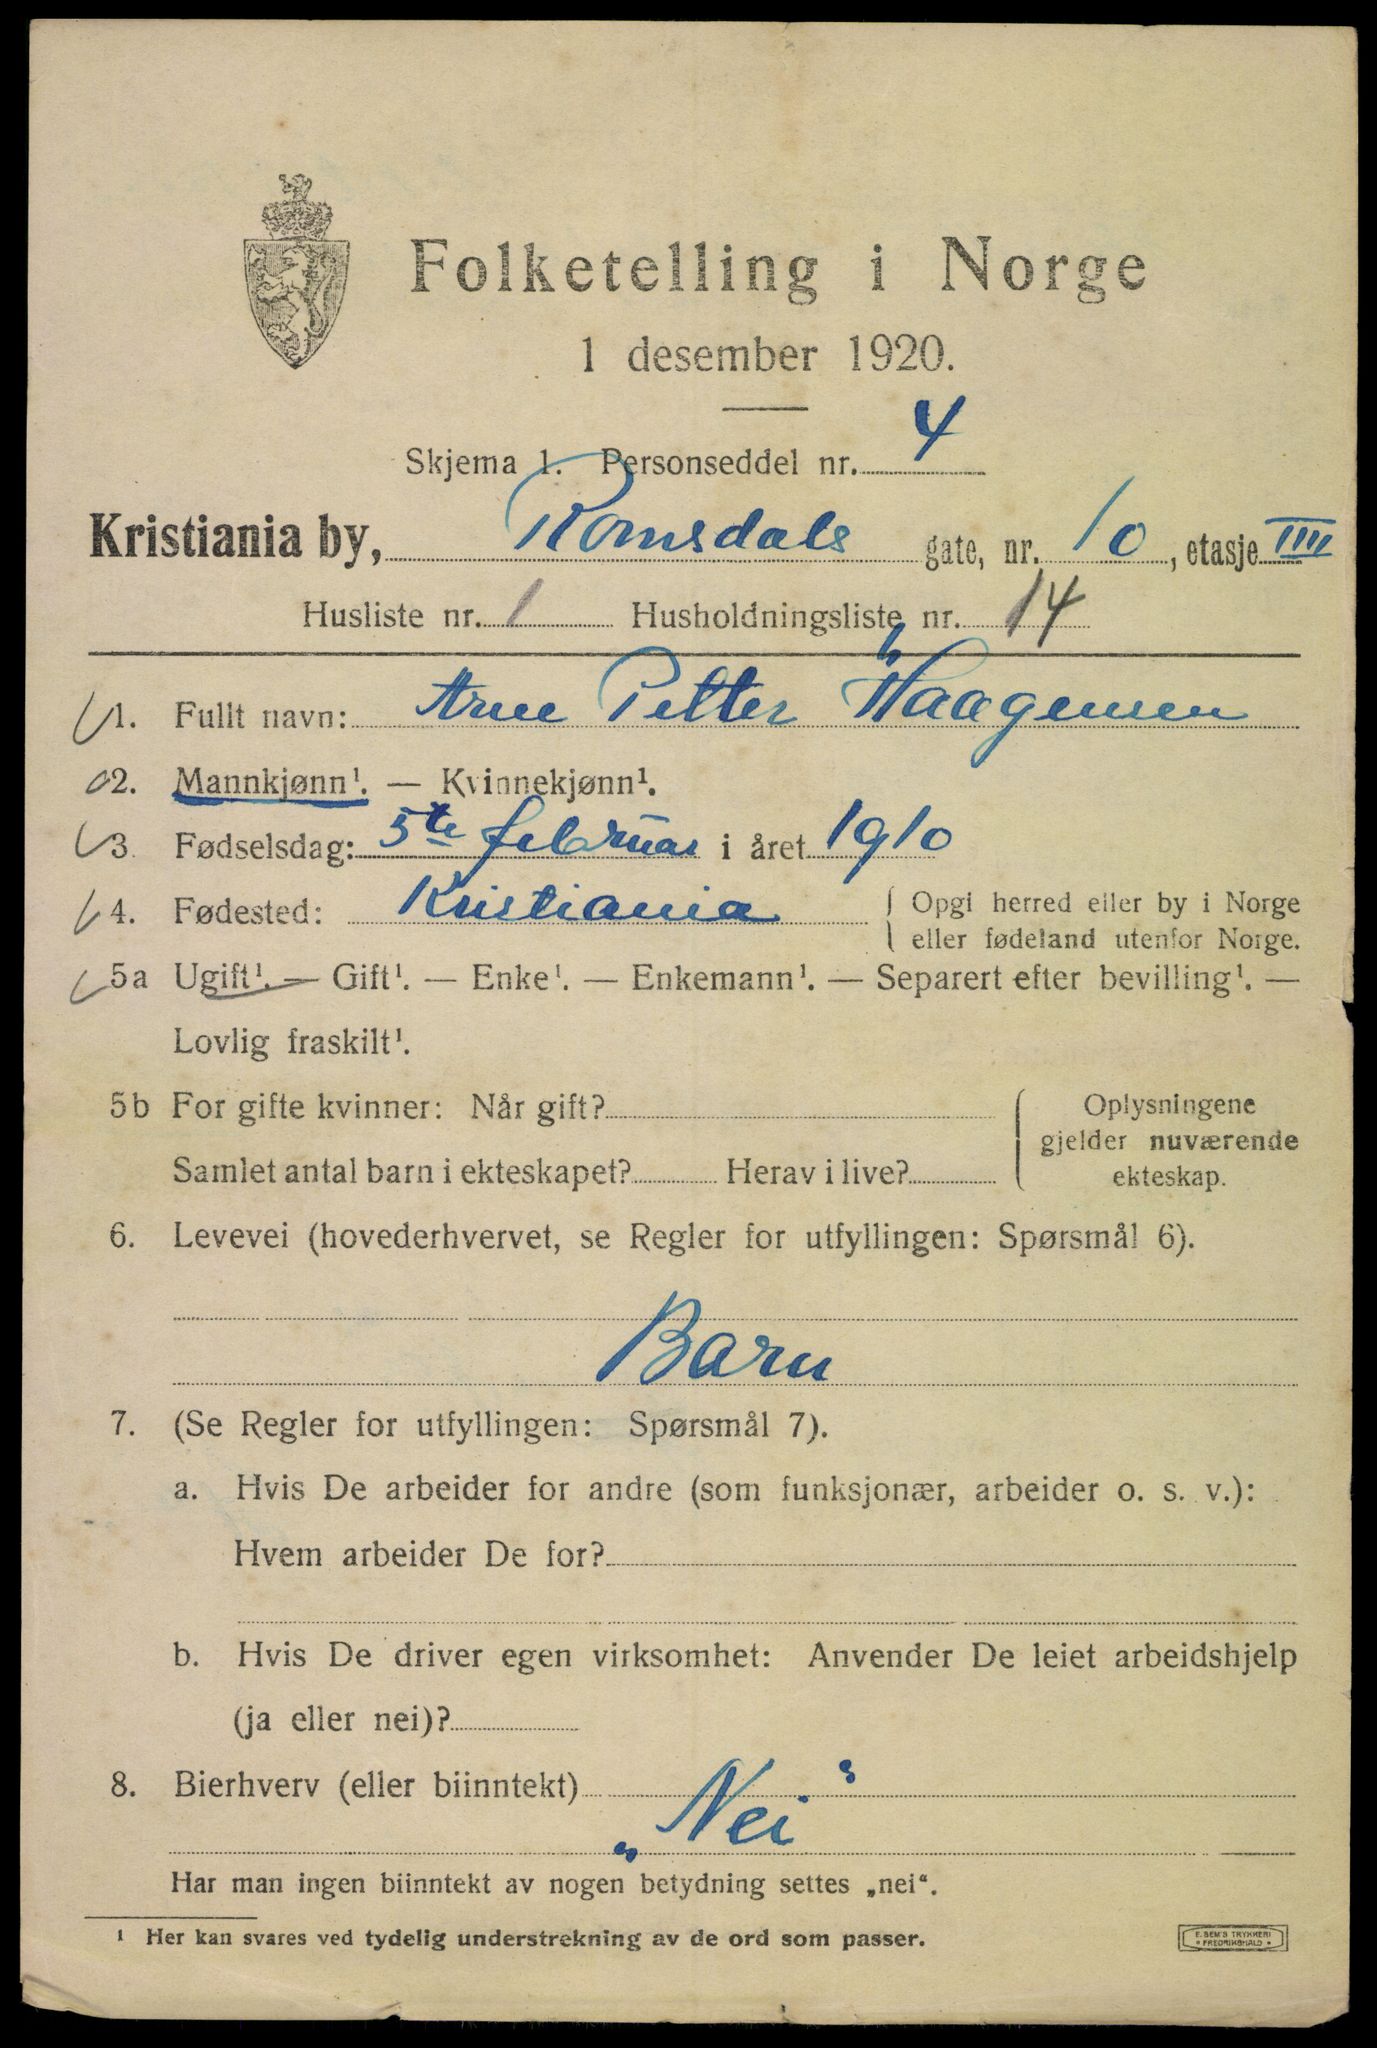 Folketelling i Norge
1 desember 1920.
Skjema 1. Personseddel nr. 4
Kristiania by, Romsdals gate, nr. 10, etasje IIII
Husliste nr. 1 Husholdningsliste nr. 14
1. Fullt navn: Arne Petter Haagensen
2. Mannkjønn¹. — Kvinnekjønn¹.
3 Fødselsdag: 5te februar i året 1910
4. Fødested: Kristiania { Opgi herred eller by i Norge
eller fødeland utenfor Norge.
5a Ugift¹. — Gift¹. — Enke¹. — Enkemann¹. — Separert efter bevilling¹. —
Lovlig fraskilt¹.
5b For gifte kvinner: Når gift? { Oplysningene
gjelder nuværende
Samlet antal barn i ekteskapet? Herav i live? ekteskap.
6. Levevei (hovederhvervet, se Regler for utfyllingen: Spørsmål 6).
Barn
7. (Se Regler for utfyllingen: Spørsmål 7).
a. Hvis De arbeider for andre (som funksjonær, arbeider o. s. v.):
Hvem arbeider De for?
b. Hvis De driver egen virksomhet: Anvender De leiet arbeidshjelp
(ja eller nei)?
8. Bierhverv (eller biinntekt)
„Nei"
Har man ingen biinntekt av nogen betydning settes „nei“.
¹ Her kan svares ved tydelig understrekning av de ord som passer.
E. SEM'S TRYKKERI
• FREDRIKSHALD •